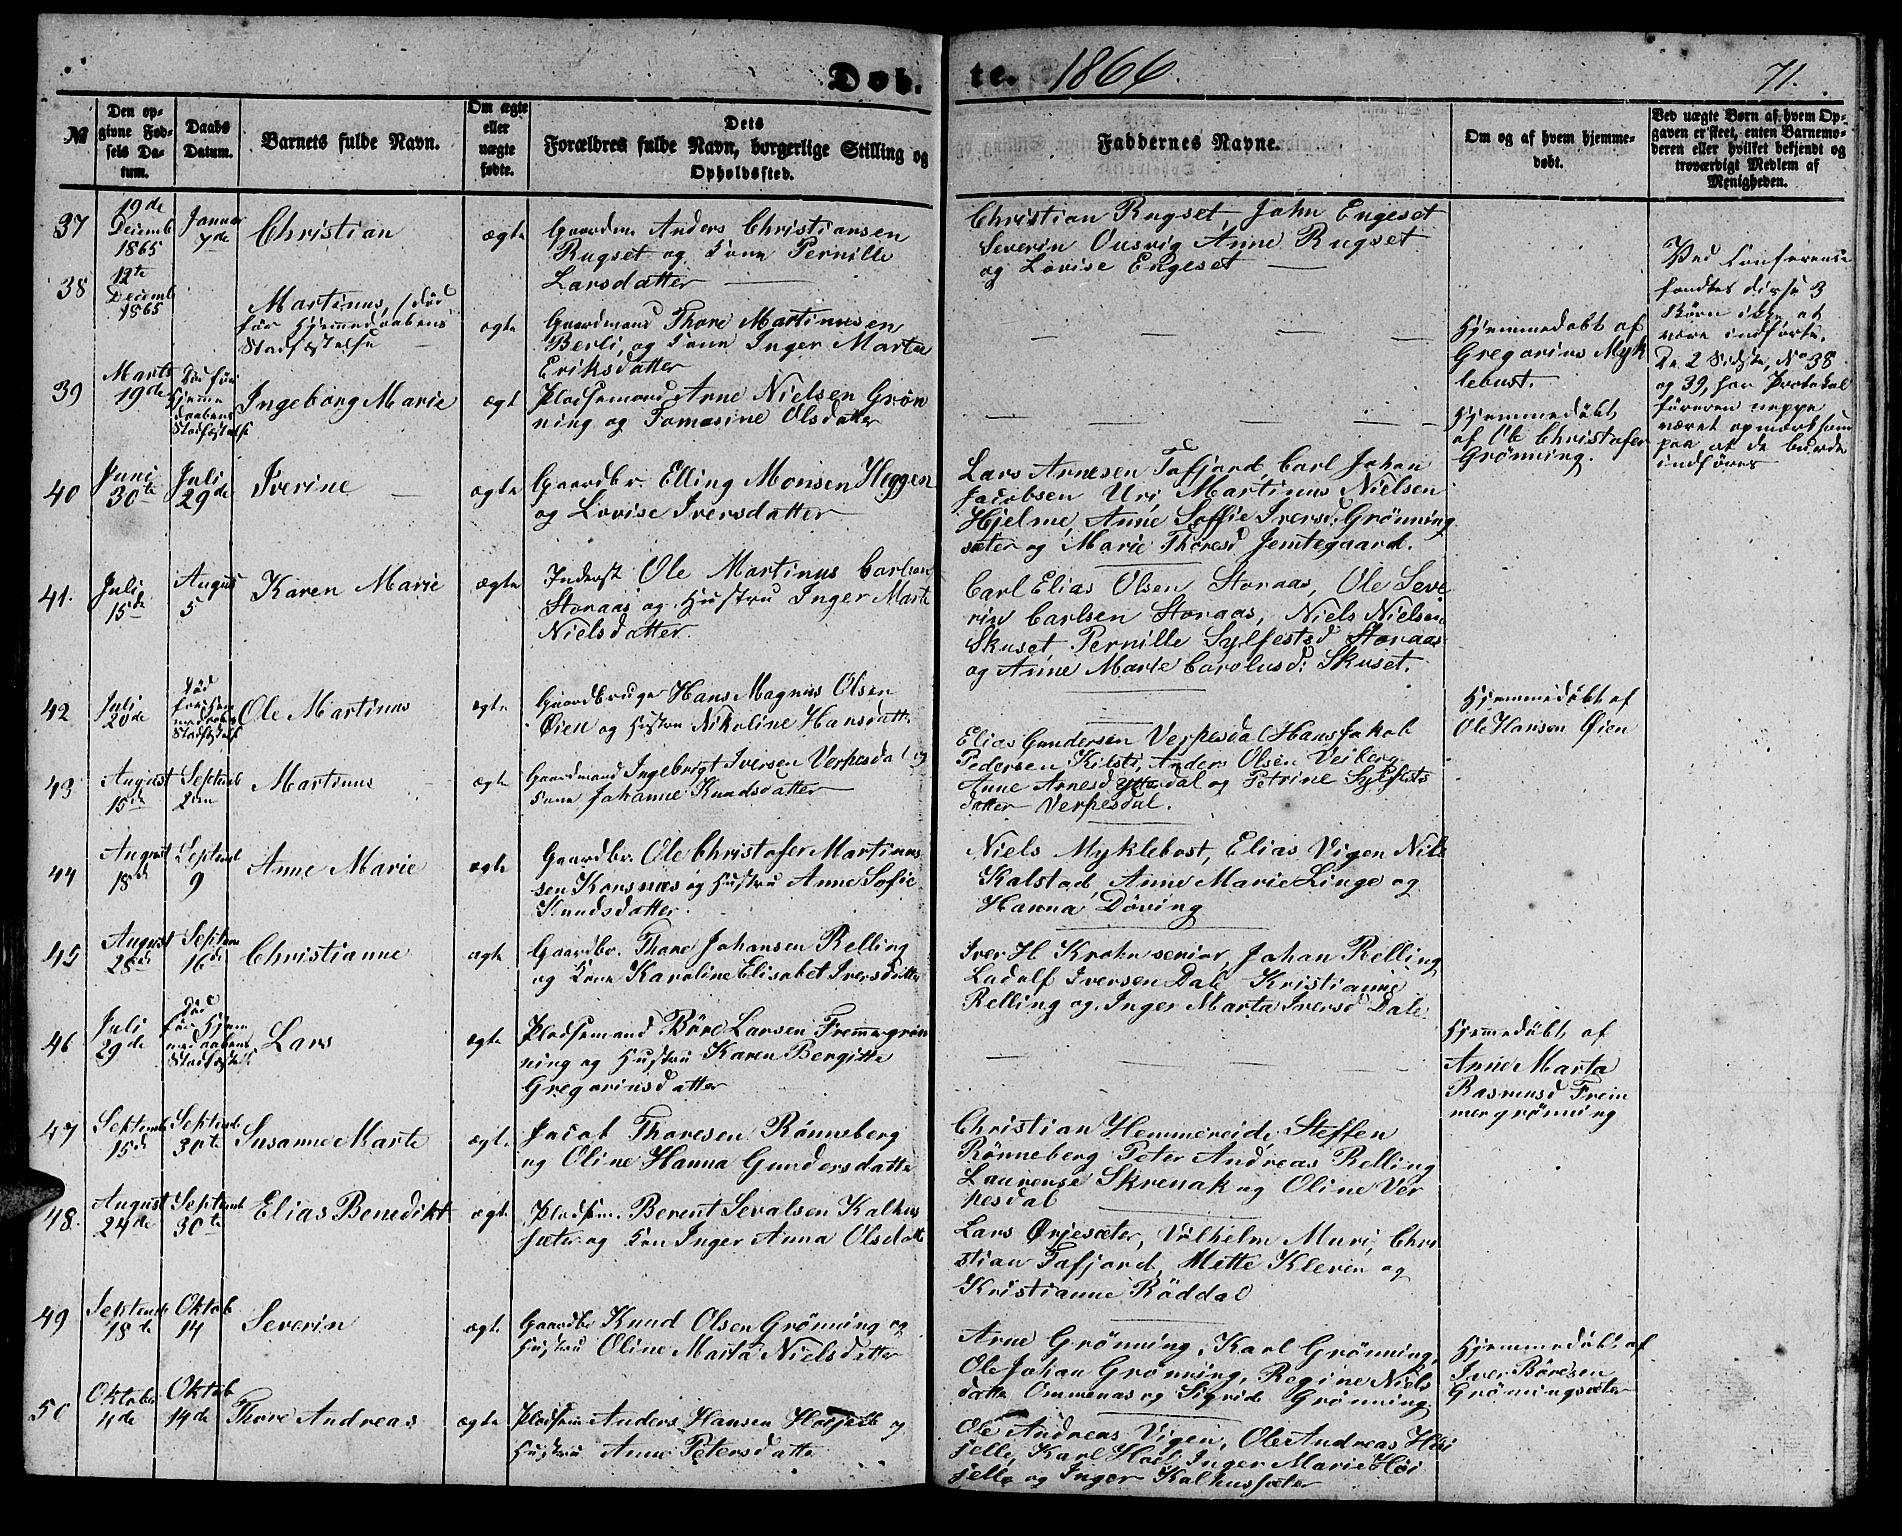 Døb-
te. 1866.
71.
№
Den op-
givne Fød-
sels Da-
tum.
Daabs
Datum.
Barnets fulde Navn.
Om ægte
eller
uægte
fødte.
Dets
Forældres fulde Navn, borgerlige Stilling og
Opholdssted.
Faddernes Navne.
Om og af hvem hjemme-
døbt.
Ved uægte Børn af hvem Op-
gaven er skeet, enten Barnemo-
deren eller hvilket bekjendt og
troværdigt Medlem af
Menigheden.
37
19de
Decemb
1865
Januar
7de
Christian
ægte
Anders Christiansen
Rugset og Kone Pernille
Larsdatter
Christian Rugset, John Engeset
Severin Ousvig Anne Rugset
og Lovise Engeset
38
12te
Decemb
1865
Martinus, /død
før Hjemmedaabens
Stadfæstelse
ægte
Gaardmand Thore Martinusen
Berli, og Kone Inger Marta
Eriksdatter
Hjemmedøbt af
Gregorius Myk
lebust.
Ved Conferense
fandtes disse 3
Børn ikke at
være indførte.
De 2 Sidste, No 38
og 39, har Protokol
føreren neppe
været opmærksom
paa at de burde
indføres
39
Marts
19de
Død før
Hjemme
daabens
Stadfæstelse
Ingeborg Marie
ægte
Pladsemand Arne Nielsen Grøn
ning og Tomasine Olsdatter
Hjemmedøbt
af Ole Christofer
Grønning.
40
Juni
30te
Juli
29de
Iverine
ægte
Gaardbr. Elling Monsen Heggen
og Lovise Iversdatter
Lars Arnesen Tafjord, Carl Johan
Jacobsen Uri Martinus Nielsen
Hjelme, Anne Soffie Iversd. Grønning
sæter og Marie Thoresd Jemtegaard.
41.
Juli
15de
Augus
5
Karen Marie
ægte
Inderst Ole Martinus Carlsen
Storaas og Hustru Inger Marte
Nielsdatter.
Carl Elias Olsen Storaas, Ole Seve
rin Carlsen Storaas, Niels Nielsen
Skuset Pernille Sylfestsd Storaas
og Anne Marie Carolusd: Skuset.
42
Juli
20de
Død
før Hjem
medaabens
Stadfæstelse
Ole Martinus
ægte
Gaardbruger Hans Magnus Olsen
Øien og Hustru Nikoline Hansdatte
Hjemmedøbt af
Ole Hansen Øien
43
August
15de
Septemb
2den
Martinus
ægte
Gaardmand Ingebrigt Iversen Verpesdal og
Kone Johanne Knudsdatter
Elias Gundersen Verpesdal Hans Jakob
Pedersen Kilsti, Anders Olsen Veiberg
Anne Arnesd Yttredal og Petrine Sylfests
datter Verpesdal.
44
August
18de
Septemb
9
Anne Marie
ægte
Gaardbr. Ole Christofer Martinus
sen Korsnæs og Hustru Anne Sofie
Knudsdatter.
Niels Myklebost, Elias Vigen Nils
Kalstad, Anne Marie Linge og
Hanna Døving
45
August
28de
Septem
16de
Christianne
ægte
Gaardbr. Thore Johansen Relling
og Kone Karoline Elisabet Iversdatter
Iver H Krohn senior, Johan Relling
Ladolf Iversen Dale Kristianne
Relling og Inger Marta Iversd Dale.
46
Juli
29de
Død
før Hjem
medaabens
Stadfæstelse
Lars
ægte
Pladsemand Børe Larsen Fremmergrøn
ning og Hustru Karen Bergitte
Gregoriusdatter
Hjemmedøbt af
Anne Marta
Rasmusd Frem
mergrønning
47
Septemb
15de
Septemb
30te
Susanne Marte
ægte
Jacob Thoresen Rønneberg
og Oline Hanna Gundersdatte
Christian Hemmereide, Steffen
Rønneberg Peter Andreas Relling
Laurense Skrenak og Oline Ver
pesdal
48.
August
24de
Septemb
30te
Elias Benedikt
ægte
Pladsem. Berent Sevalsen Kalhus
sæter og Kone Inger Anna Olsdatte
Lars Ørjesæter, Vilhelm Muri, Chri
stian Tafjord, Mette Kleven og
Kristianne Røddal
49
Septemb
18de
Oktob
14
Severin
ægte
Gaardbr Knud Olsen Grønning og
Hustru Oline Marta Nielsdatter
Arne Grønning, Karl Grønning,
Ole Johan Grønning, Regine Niels
datte Ommenas og Sigride Grønning.
Hjemmedøbt af
Iver Børesen
Grønningsæter
50
Oktober
4de
Oktob
14de
Thore Andreas
ægte
Pladsem Anders Hansen Høgjelle og
Hustru Anne Petersdatte
Ole Andreas Vigen, Ole Andreas Høi
jelle, Karl Hoel, Inger Marie Høi
jelle og Inger Kalhussæter